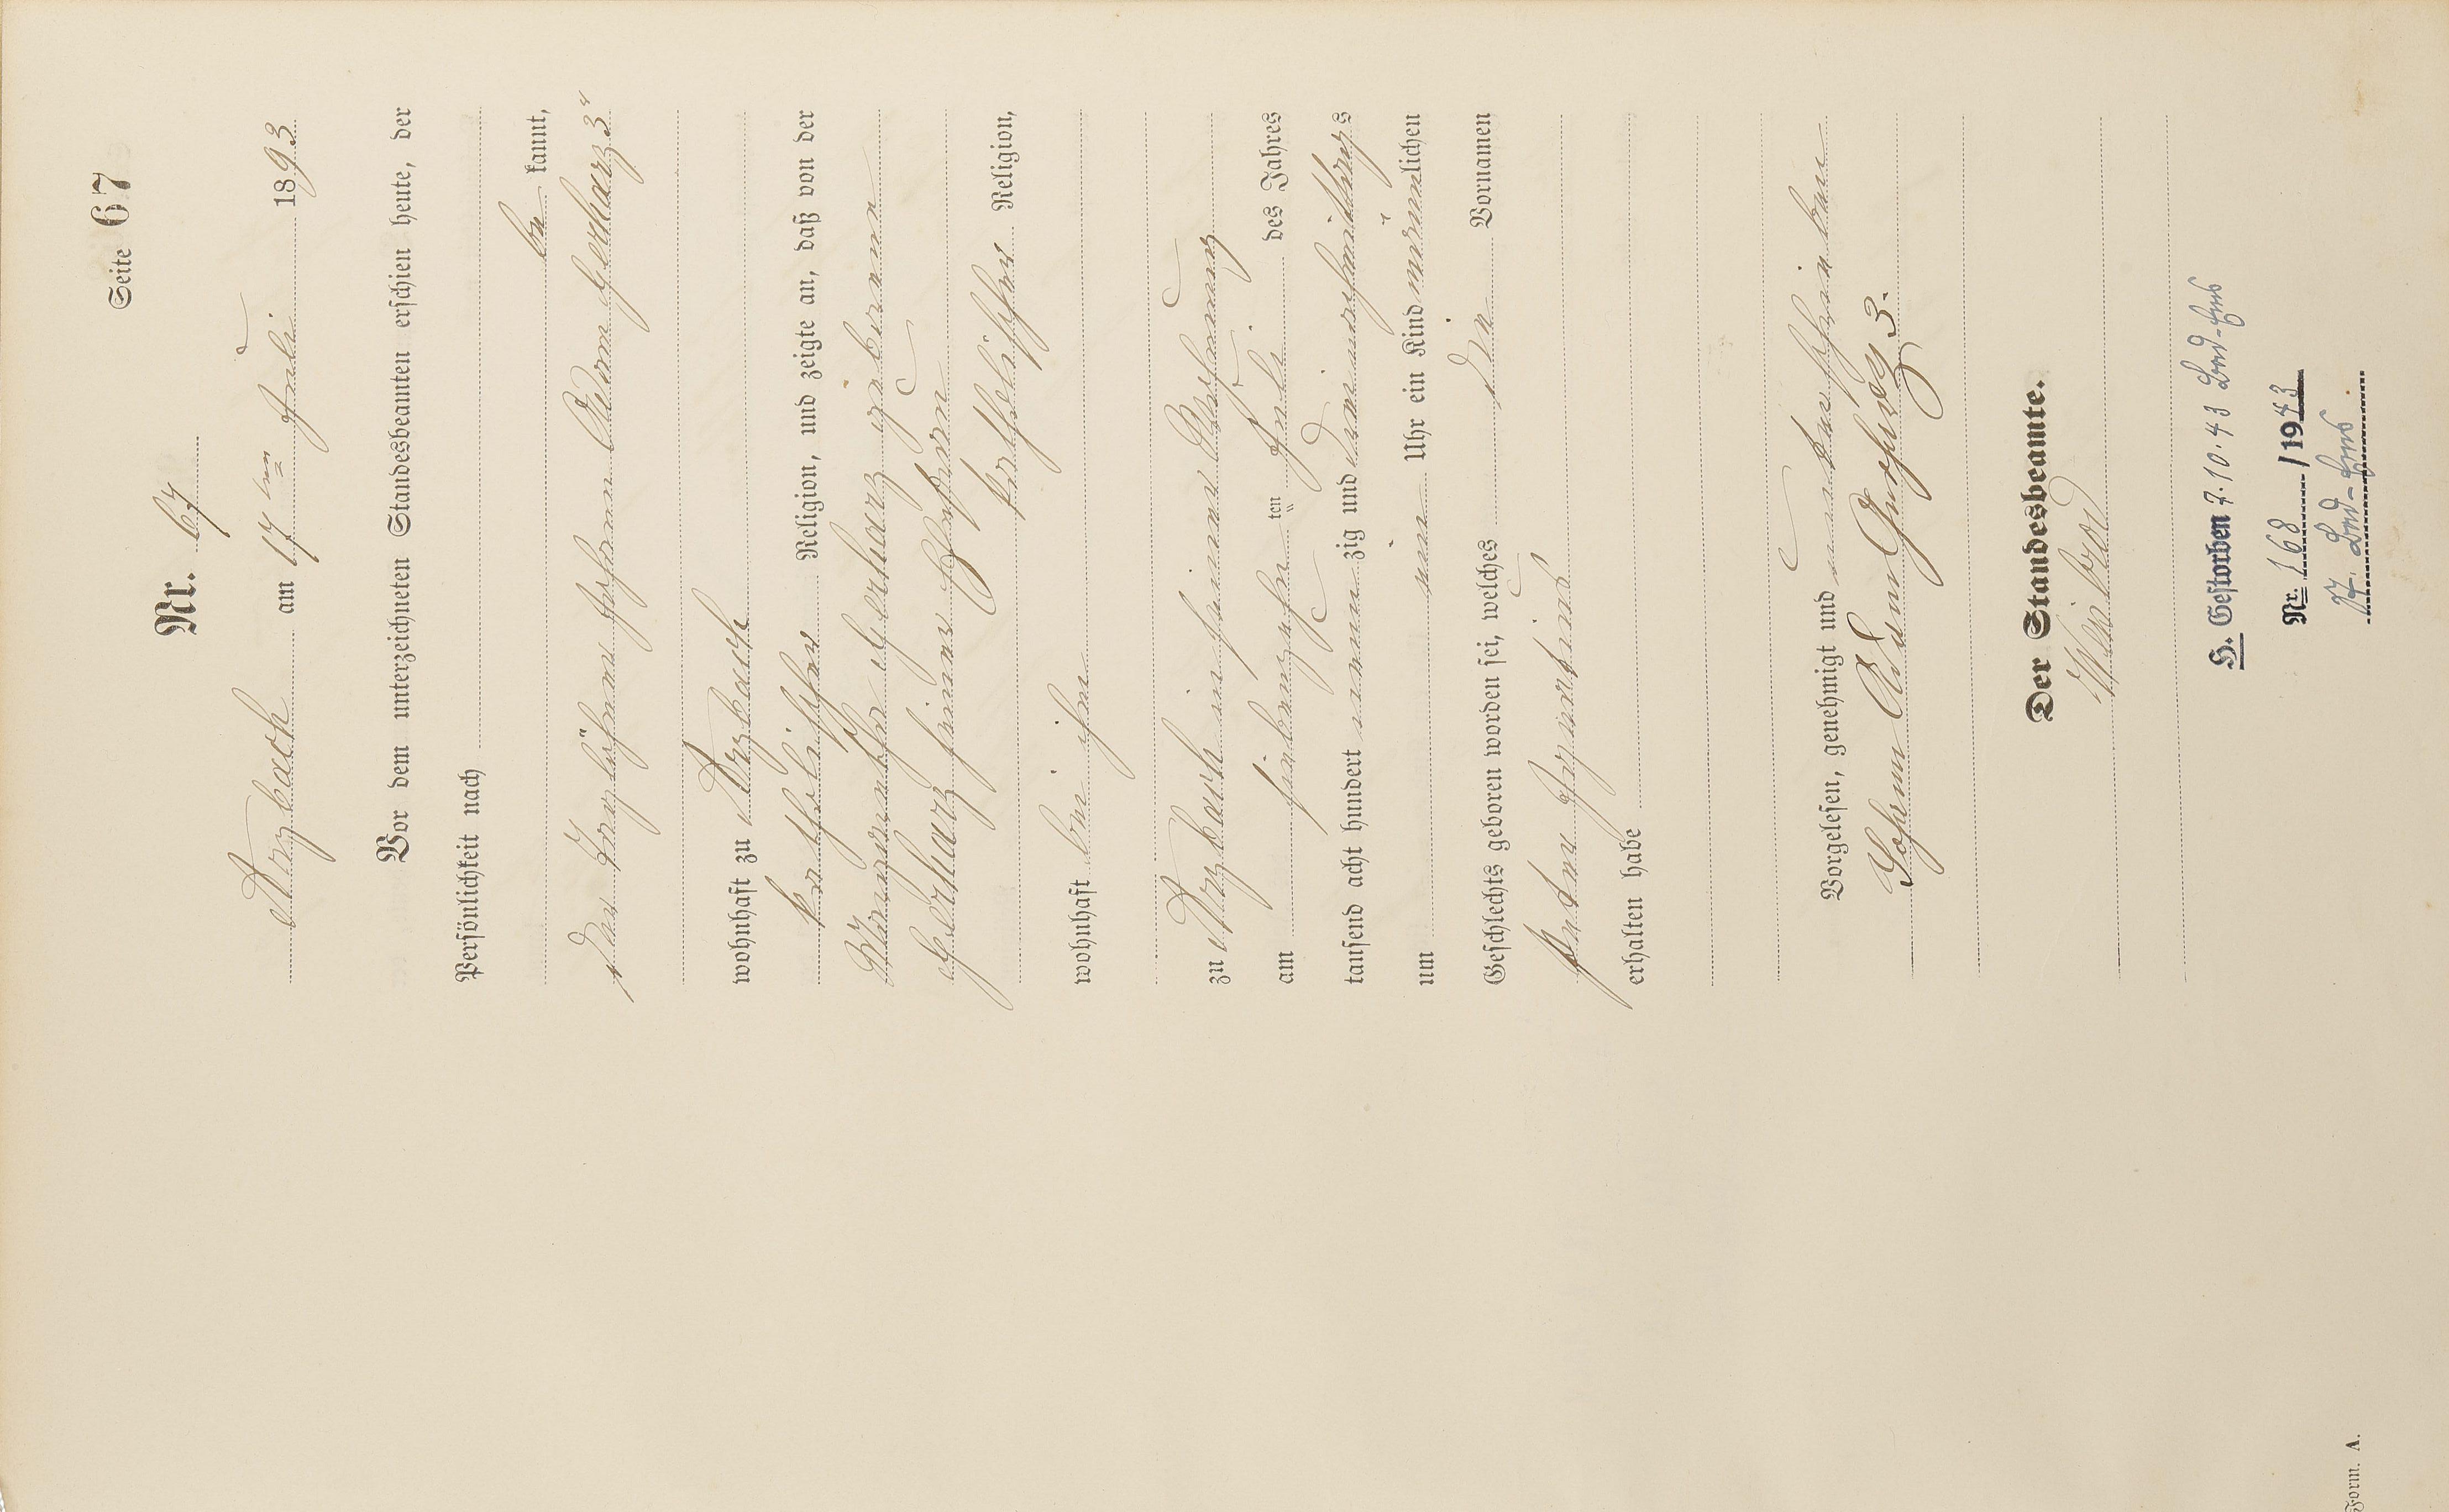 Seite 67
Nr. 67
Arzbach am 17ten Juli 1893
Vor dem unterzeichneten Standesbeamten erschien heute, der
Persönlichkeit nach
be kannt,
der Taglöhner Johann Adam Gerharz 3r
wohnhaft zu Arzbach
katholischer Religion, und zeigte an, daß von der
Margaretha Gerharz geborene
Gerharz seiner Ehefrau
katholischer Religion,
wohnhaft bei ihm
zu Arzbach in seiner Wohnung
am siebenzehnten Juli des Jahres
tausend acht hundert neunzig und drei nachmittags
um ein Uhr ein Kind männlichen
Geschlechts geboren worden sei, welches den Vornamen
erhalten habe
Vorgelesen, genehmigt und unterschrieben
Johann Adam Gerharz 3.
Der Standesbeamte.
H. Gestorben 7.10.43 Bad-Ems
Nr. 168/1943
St. Bad-Ems
Form. A.